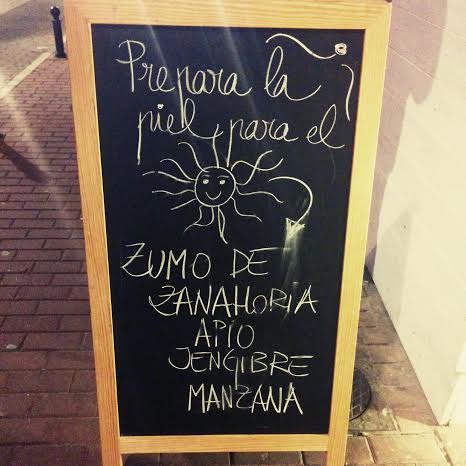 Prepara la
piel para el
ZUMO DE
ZANAHORIA
APIO
JENGIBRE
MANZANA